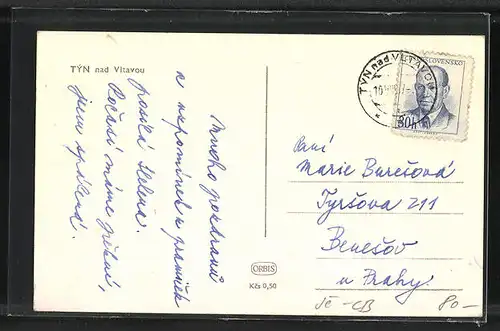 TÝN nad Vltavou
Mnoho pozdravů
a vzpomínek z prázdnin
posílá Helena.
Počasí máme pěkné,
jsem spálená.
TÝN nad VLTAVOU
ČESKOSLOVENSKO
30h
Paní
Marie Burešová
Tyršova 211
Benešov
u Prahy
ORBIS
Kčs 0,50
JČ-ČB 80-